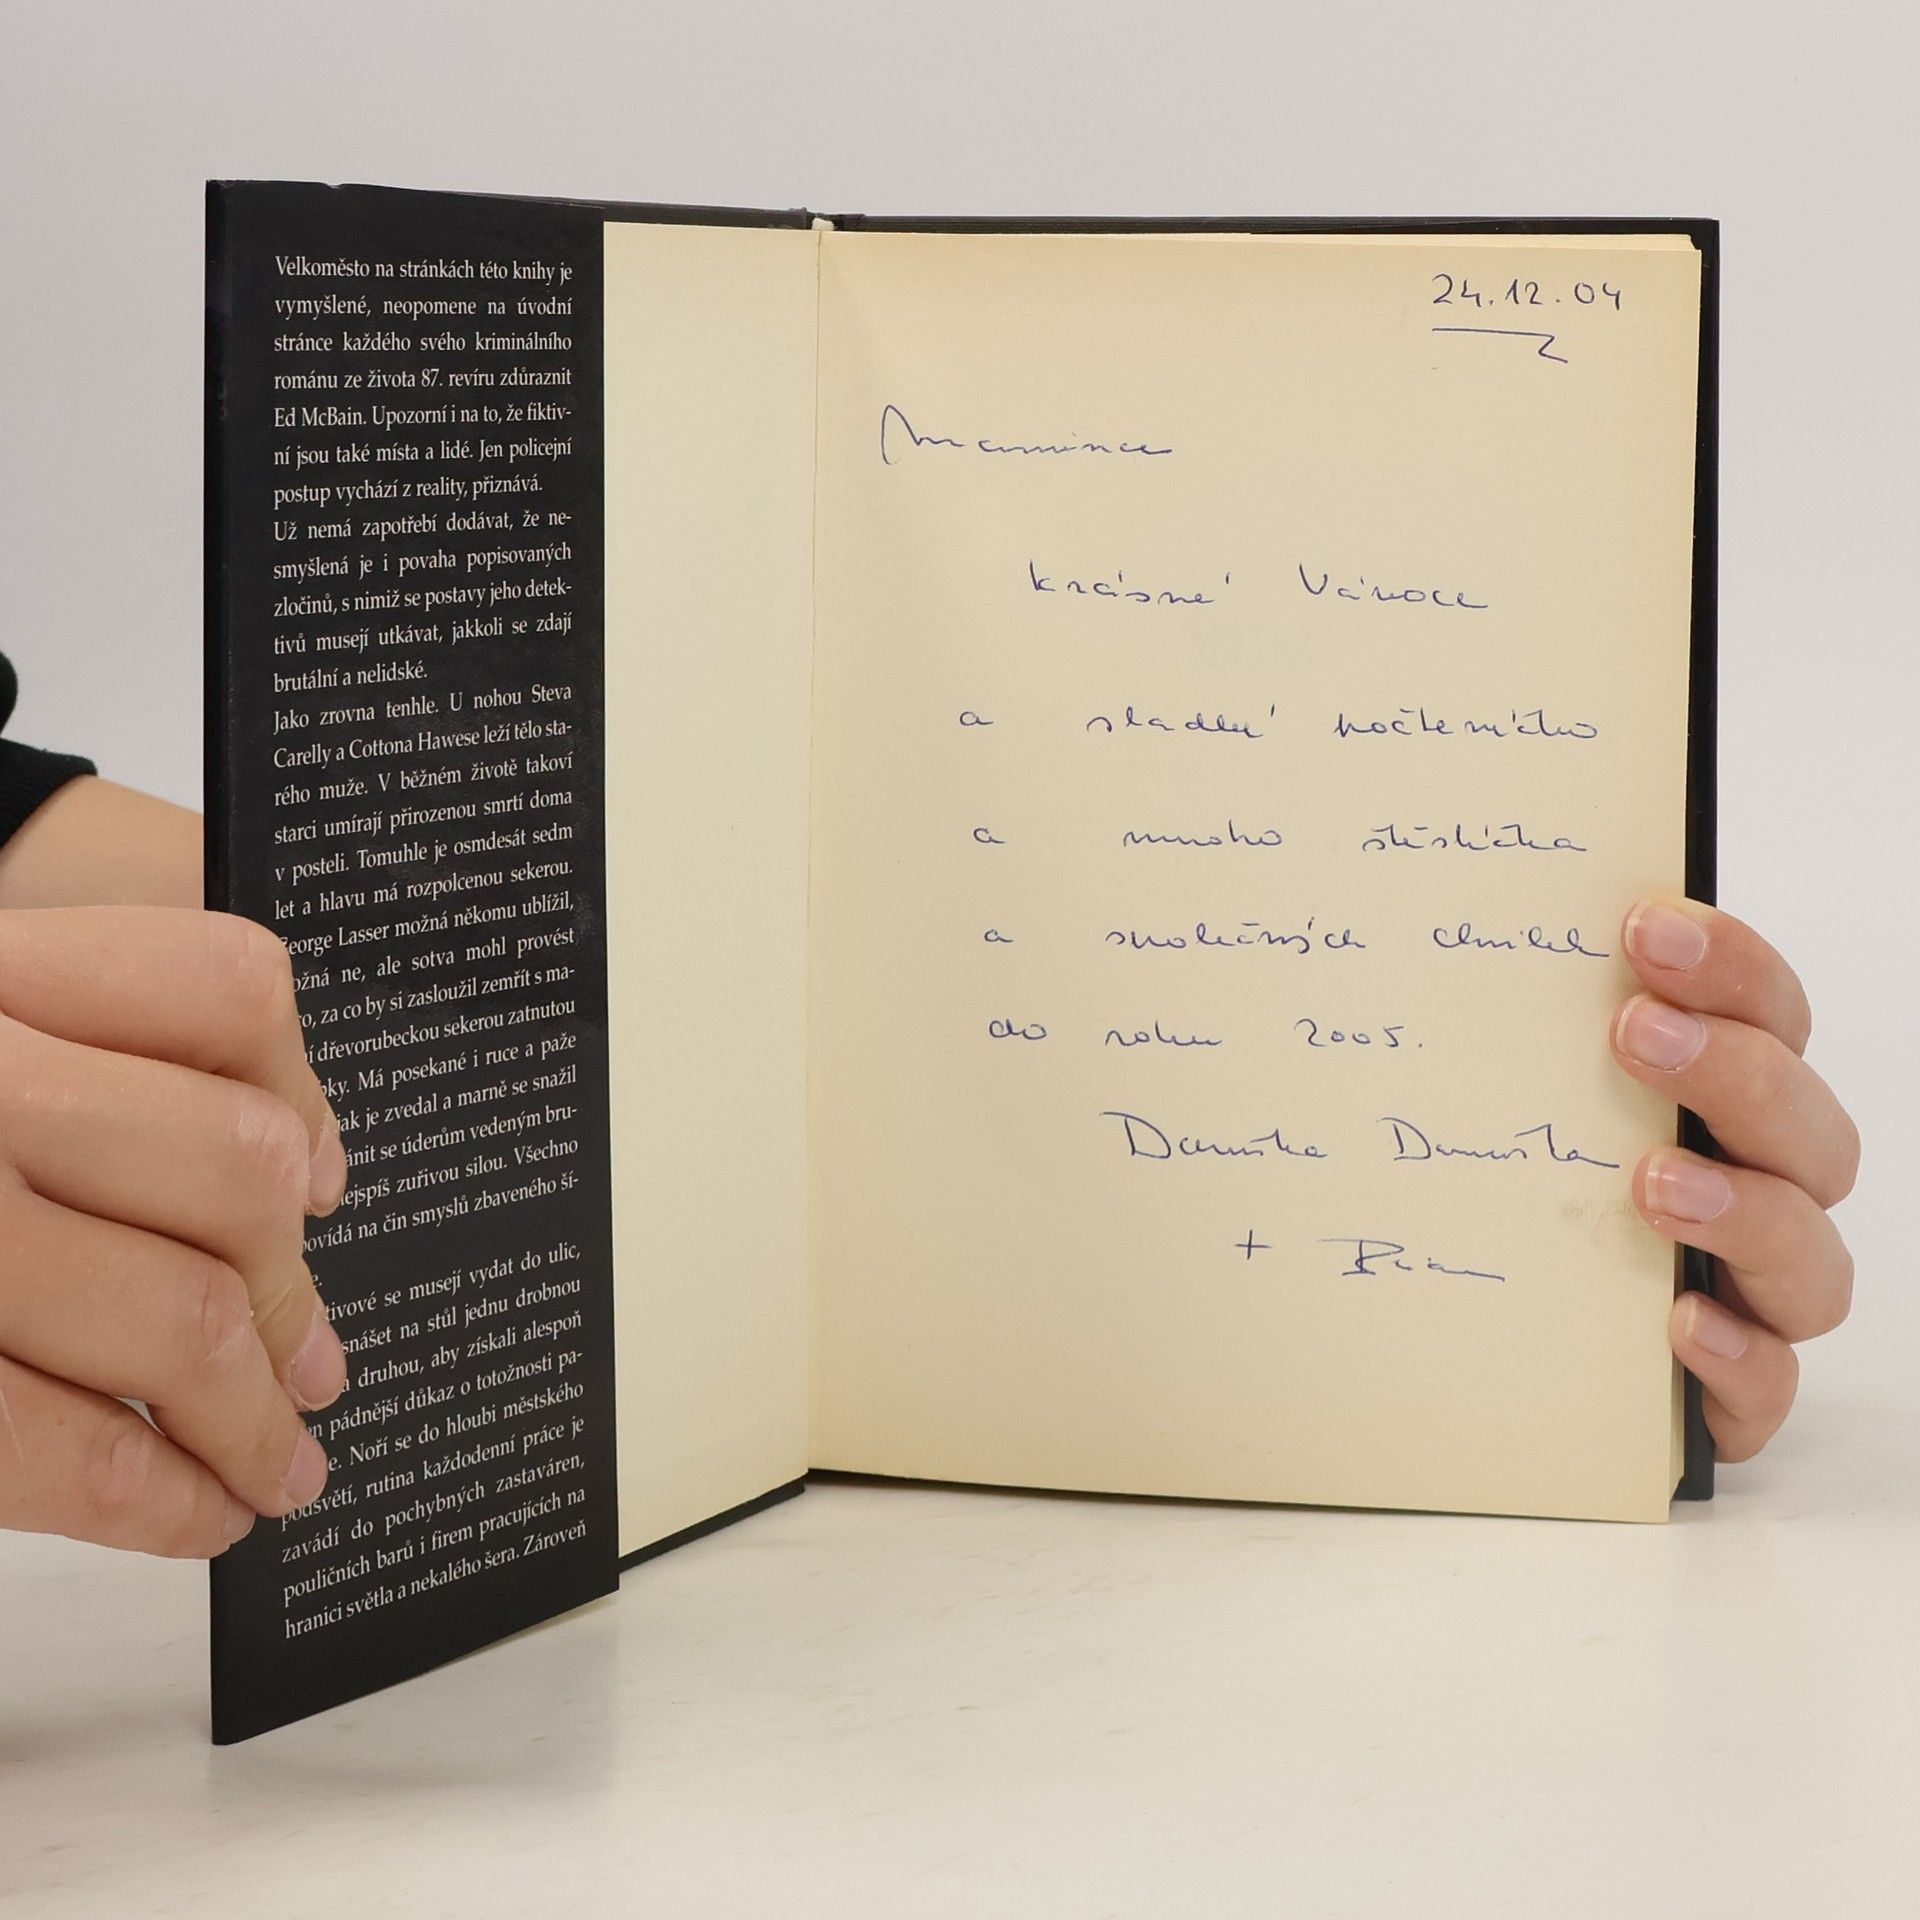 Velkoměsto na stránkách této knihy je
vymyšlené, neopomene na úvodní
stránce každého svého kriminálního
románu ze života 87. revíru zdůraznit
Ed McBain. Upozorní i na to, že fiktiv-
ní jsou také místa a lidé. Jen policejní
postup vychází z reality, přiznává.
Už nemá zapotřebí dodávat, že ne-
smyšlená je i povaha popisovaných
zločinů, s nimiž se postavy jeho detek-
tivů musejí utkávat, jakkoli se zdají
brutální a nelidské.
Jako zrovna tenhle. U nohou Steva
Carelly a Cottona Hawese leží tělo sta-
rého muže. V běžném životě takoví
starci umírají přirozenou smrtí doma
v posteli. Tomuhle je osmdesát sedm
let a hlavu má rozpolcenou sekerou.
George Lasser možná někomu ublížil,
ožná ne, ale sotva mohl provést
o, za co by si zasloužil zemřít s ma-
í dřevorubeckou sekerou zatnutou
bky. Má posekané i ruce a paže
jak je zvedal a marně se snažil
ánit se úderům vedeným bru-
ejspíš zuřivou silou. Všechno
ovídá na čin smyslů zbaveného ší-
e.
tivové se musejí vydat do ulic,
snášet na stůl jednu drobnou
a druhou, aby získali alespoň
en pádnější důkaz o totožnosti pa-
e. Noří se do hloubi městského
podsvětí, rutina každodenní práce je
zavádí do pochybných zastaváren,
pouličních barů i firem pracujících na
hranici světla a nekalého šera. Zároveň
24.12.04
Mamince
krásné Vánoce
a sladké počteníčko
a mnoho štěstíčka
a společných chvilek
do roku 2005.
Danuška
+